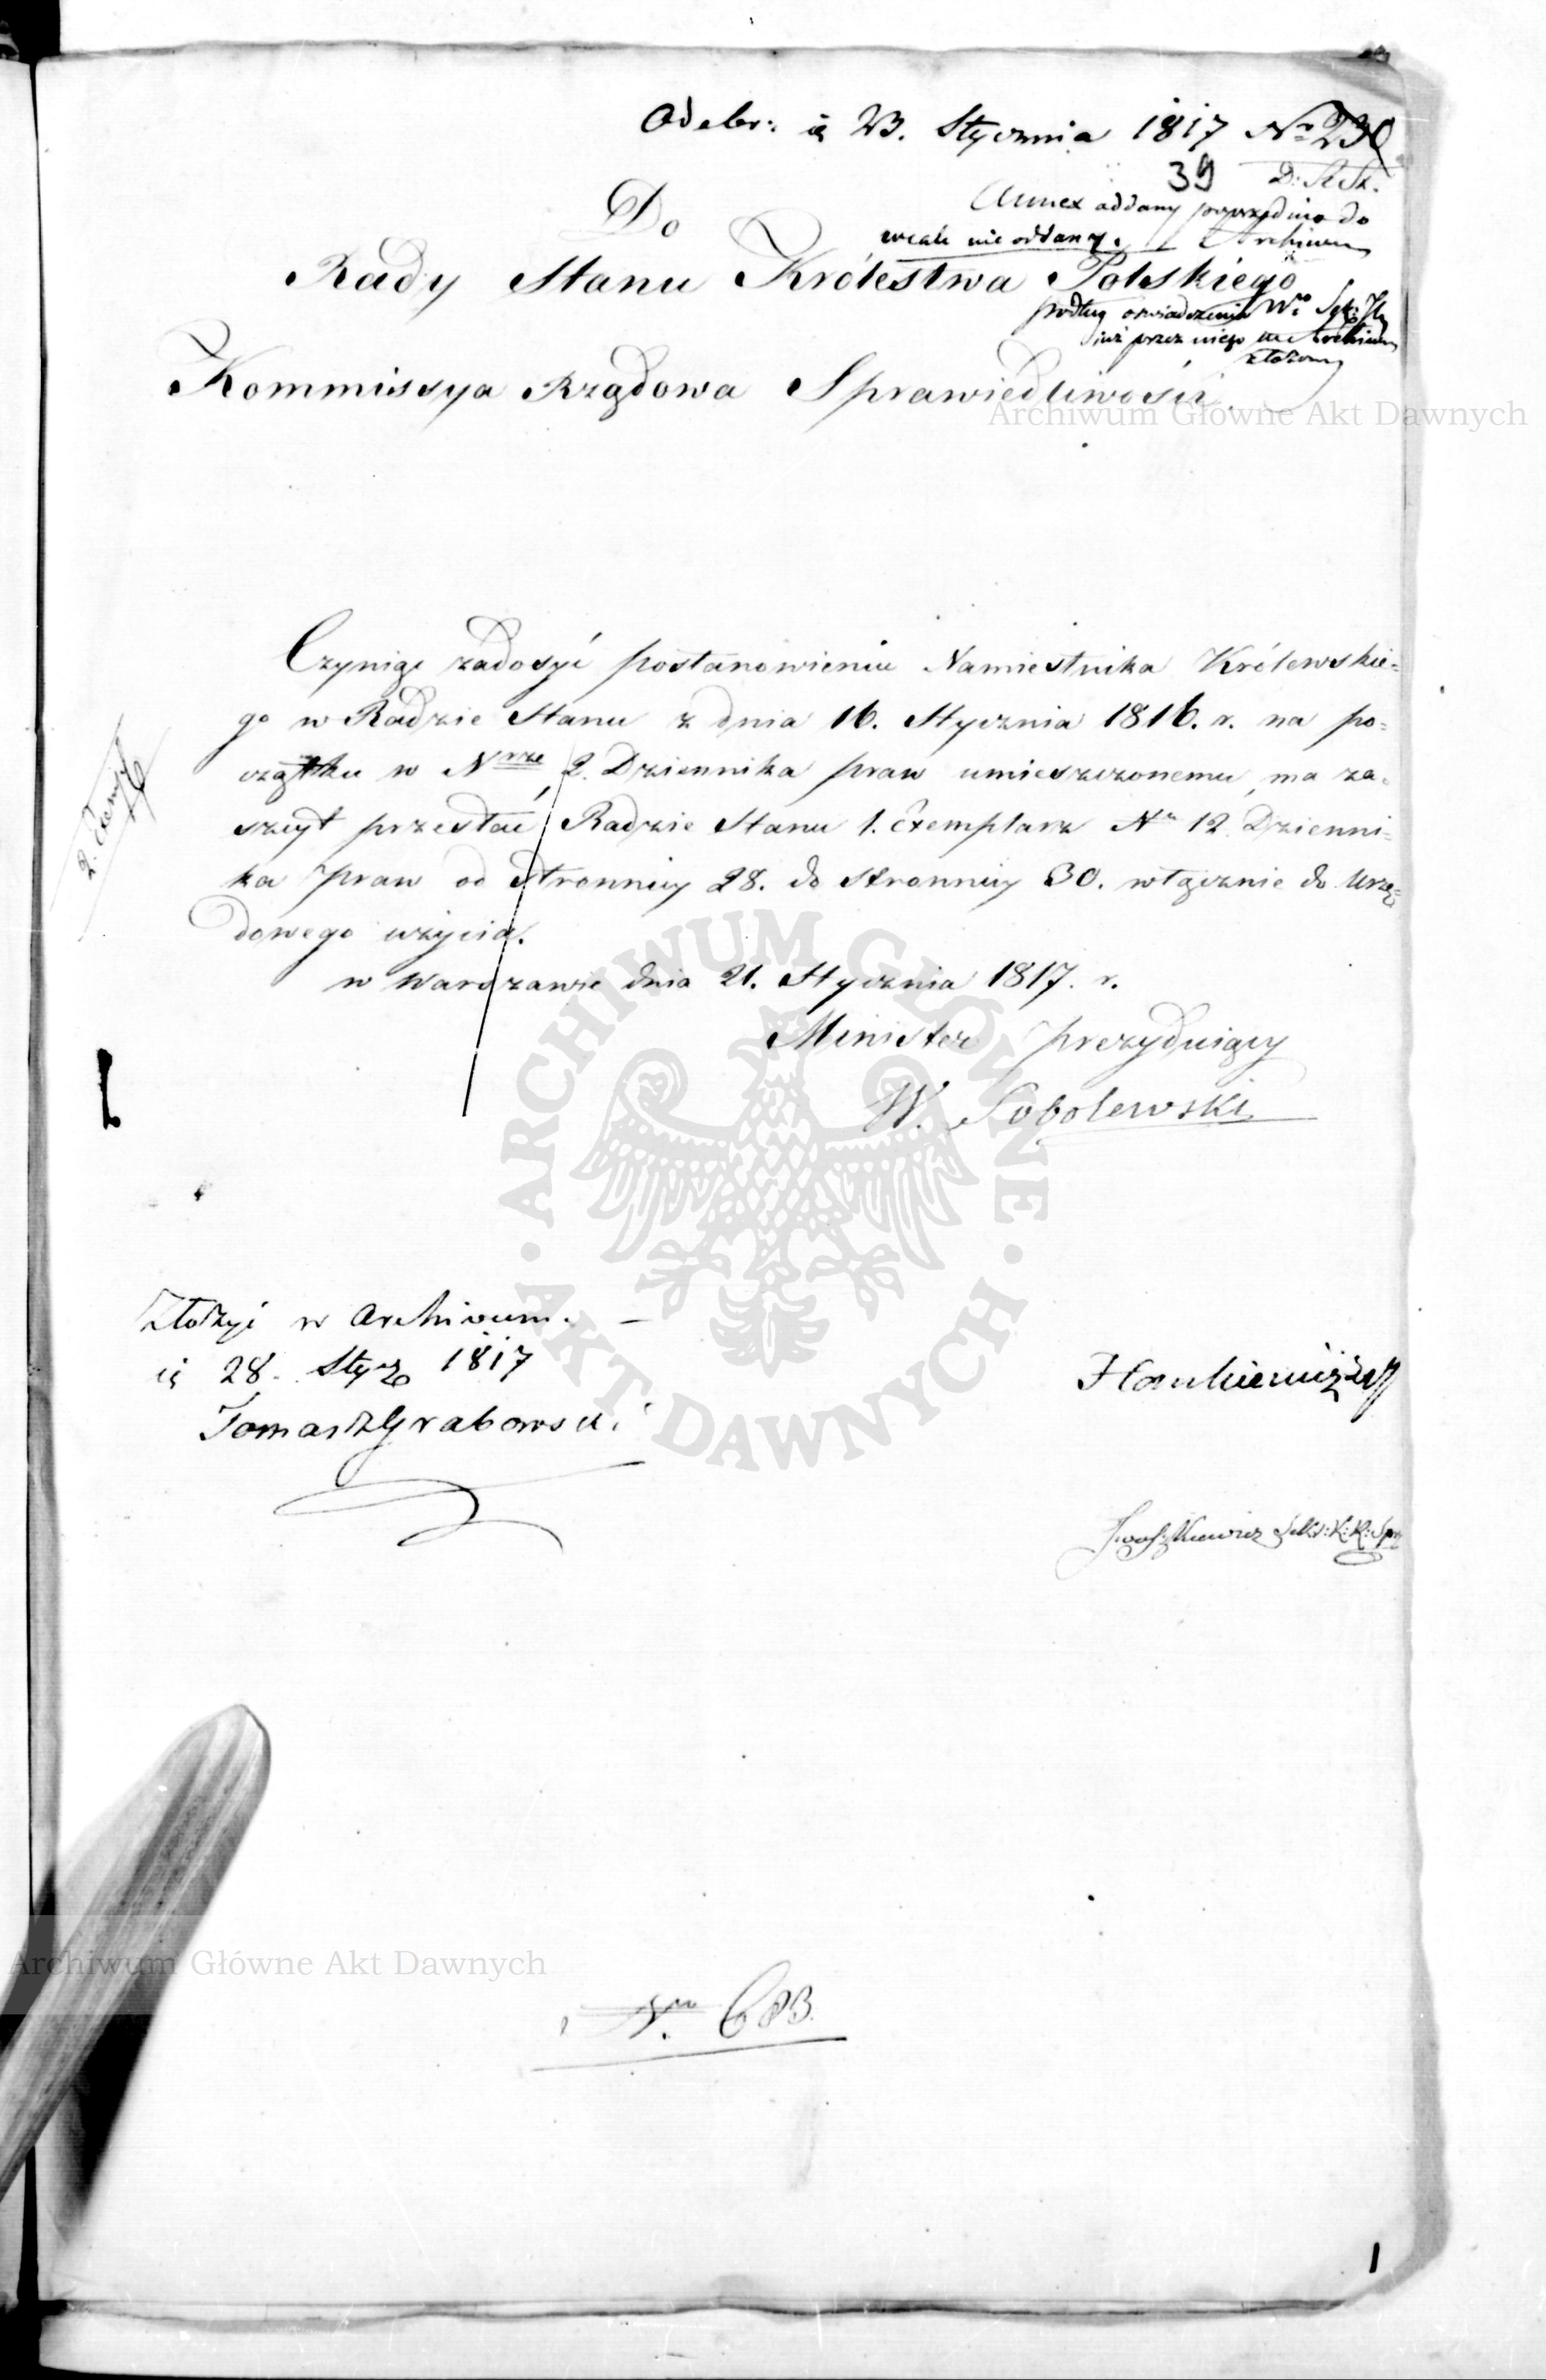 Odebr: d. 23. Stycznia 1817 Nr 230
39 D: R St.
Annex oddany poprzednio do
wcale nie oddany. Archiwum
Do
Rady Stanu Królestwa Polskiego
podług oświadczenia
już przez niego w Archiwum
złożony
Kommissya Rządowa Sprawiedliwości
Czyniąc zadosyć postanowieniu Namiestnika Królewskie=
go w Radzie Stanu z dnia 16. Stycznia 1816. r. na po=
czątku w Nrze 2. Dziennika praw umieszczonemu, ma za=
szczyt przesłać Radzie Stanu 1. Exemplarz Nr 12 Dzienni=
ka praw od stronnicy 28. do stronnicy 30. włącznie do Urzę=
dowego użycia.
2. Exempl
w Warszawie dnia 21. Stycznia 1817. r.
Minister prezydujący
W. Sobolewski
Złożyć w Archivum.
d. 28. Stycz 1817
Tomasz Grabowski
Hankiewicz
Iwaszkiewicz Sekr: K: R: Spr
Nro 683.
1
Archiwum Główne Akt Dawnych
Archiwum Główne Akt Dawnych
ARCHIWUM GŁÓWNE AKT DAWNYCH